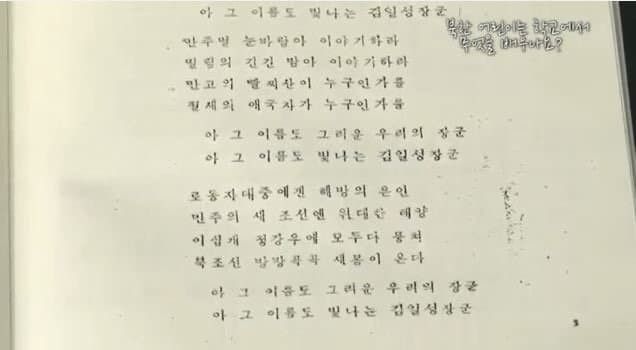 아 그 이름도 빛나는 김일성장군
북한 어린이는 학교에서
무엇을 배우나요?
만주벌 눈바람아 이야기하라
밀림의 긴긴 밤아 이야기하라
만고의 빨찌산이 누구인가를
절세의 애국자가 누구인가를
아 그 이름도 그리운 우리의 장군
아 그 이름도 빛나는 김일성장군
로동자대중에겐 해방의 은인
민주의 새 조선엔 위대한 태양
이십개 정강우에 모두다 뭉쳐
북조선 방방곡곡 새봄이 온다
아 그 이름도 그리운 우리의 장군
아 그 이름도 빛나는 김일성장군
3